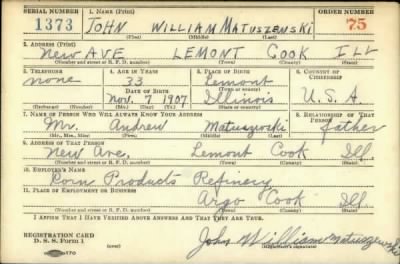 SERIAL NUMBER 1. NAME (Print) ORDER NUMBER
1373 JOHN WILLIAM MATUSZEWSKI 75
(First) (Middle) (Last)
2. ADDRESS (Print)
New AVE LEMONT COOK ILL
(Number and street or R. F. D. number) (Town) (County) (State)
3. TELEPHONE 4. AGE IN YEARS 5. PLACE OF BIRTH 6. COUNTRY OF CITIZENSHIP
none 33 Lemont
DATE OF BIRTH (Town or county)
Nov. 7 1907 Illinois U. S. A.
(Exchange) (Number) (Mo.) (Day) (Yr.) (State or country)
7. NAME OF PERSON WHO WILL ALWAYS KNOW YOUR ADDRESS 8. RELATIONSHIP OF THAT PERSON
Mr. Andrew Matuszwski father
(Mr., Mrs., Miss) (First) (Middle) (Last)
9. ADDRESS OF THAT PERSON
New Ave, Lemont Cook Ill
(Number and street or R. F. D. number) (Town) (County) (State)
10. EMPLOYER'S NAME
Corn Products Refinery
11. PLACE OF EMPLOYMENT OR BUSINESS
Argo Cook Ill.
(Number and street or R. F. D. number) (Town) (County) (State)
I AFFIRM THAT I HAVE VERIFIED ABOVE ANSWERS AND THAT THEY ARE TRUE.
REGISTRATION CARD
D. S. S. Form 1 John William Matuszewski
(Registrant's signature)